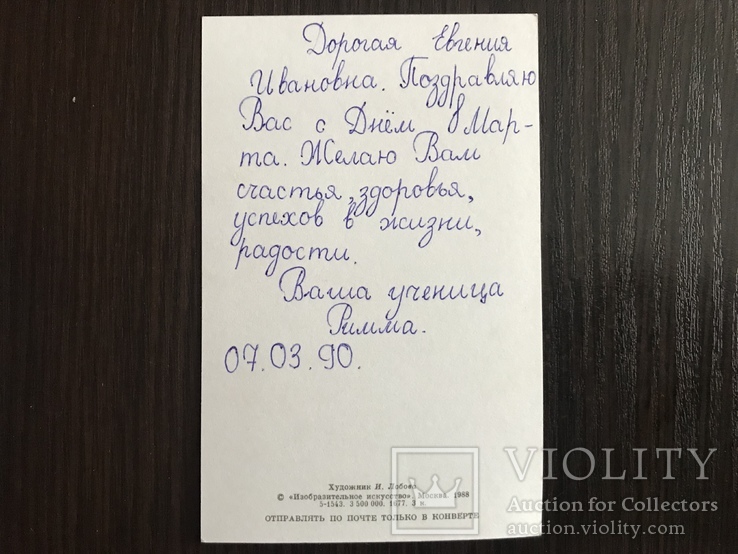 Дорогая Евгения
Ивановна. Поздравляю
Вас с Днём 8 Мар-
та. Желаю Вам
счастья, здоровья,
успехов в жизни,
радости.
Ваша ученица
Римма.
07.03.90.
Художник И. Лобова
© «Изобразительное искусство». Москва. 1988
5-1543. 3 500 000. 1677. 3 к.
ОТПРАВЛЯТЬ ПО ПОЧТЕ ТОЛЬКО В КОНВЕРТЕ
VIOLITY
Auction for Collectors
auction.violity.com